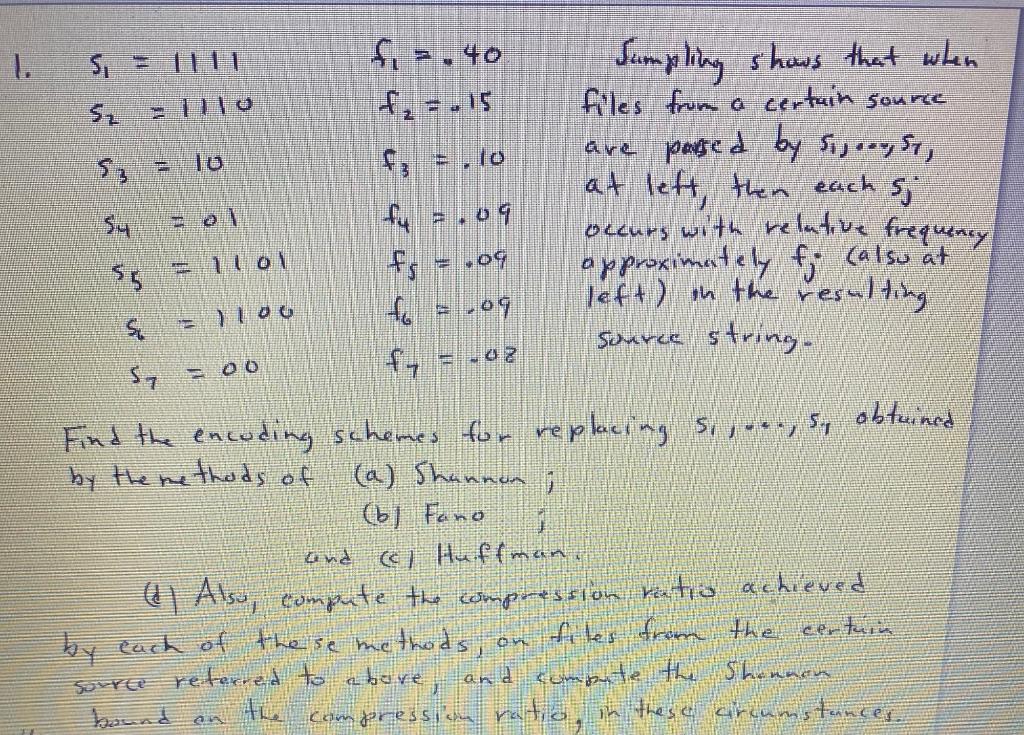 1. S₁ = 1111 f₁ = .40 Sampling shows that when
S₂ = 1110 f₂ = .15 files from a certain source
S₃ = 10 f₃ = .10 are parsed by S₁,...,S₇,
S₄ = 01 f₄ = .09 at left, then each Sⱼ
occurs with relative frequency
S₅ = 1101 f₅ = .09 approximately fⱼ (also at
S₆ = 1100 f₆ = .09 left) in the resulting
S₇ = 00 f₇ = .08 source string.
Find the encoding schemes for replacing S₁,...,S₇ obtained
by the methods of (a) Shannon ;
(b) Fano ;
and (c) Huffman.
(d) Also, compute the compression ratio achieved
by each of these methods, on files from the certain
source referred to above, and compute the Shannon
bound on the compression ratio, in these circumstances.